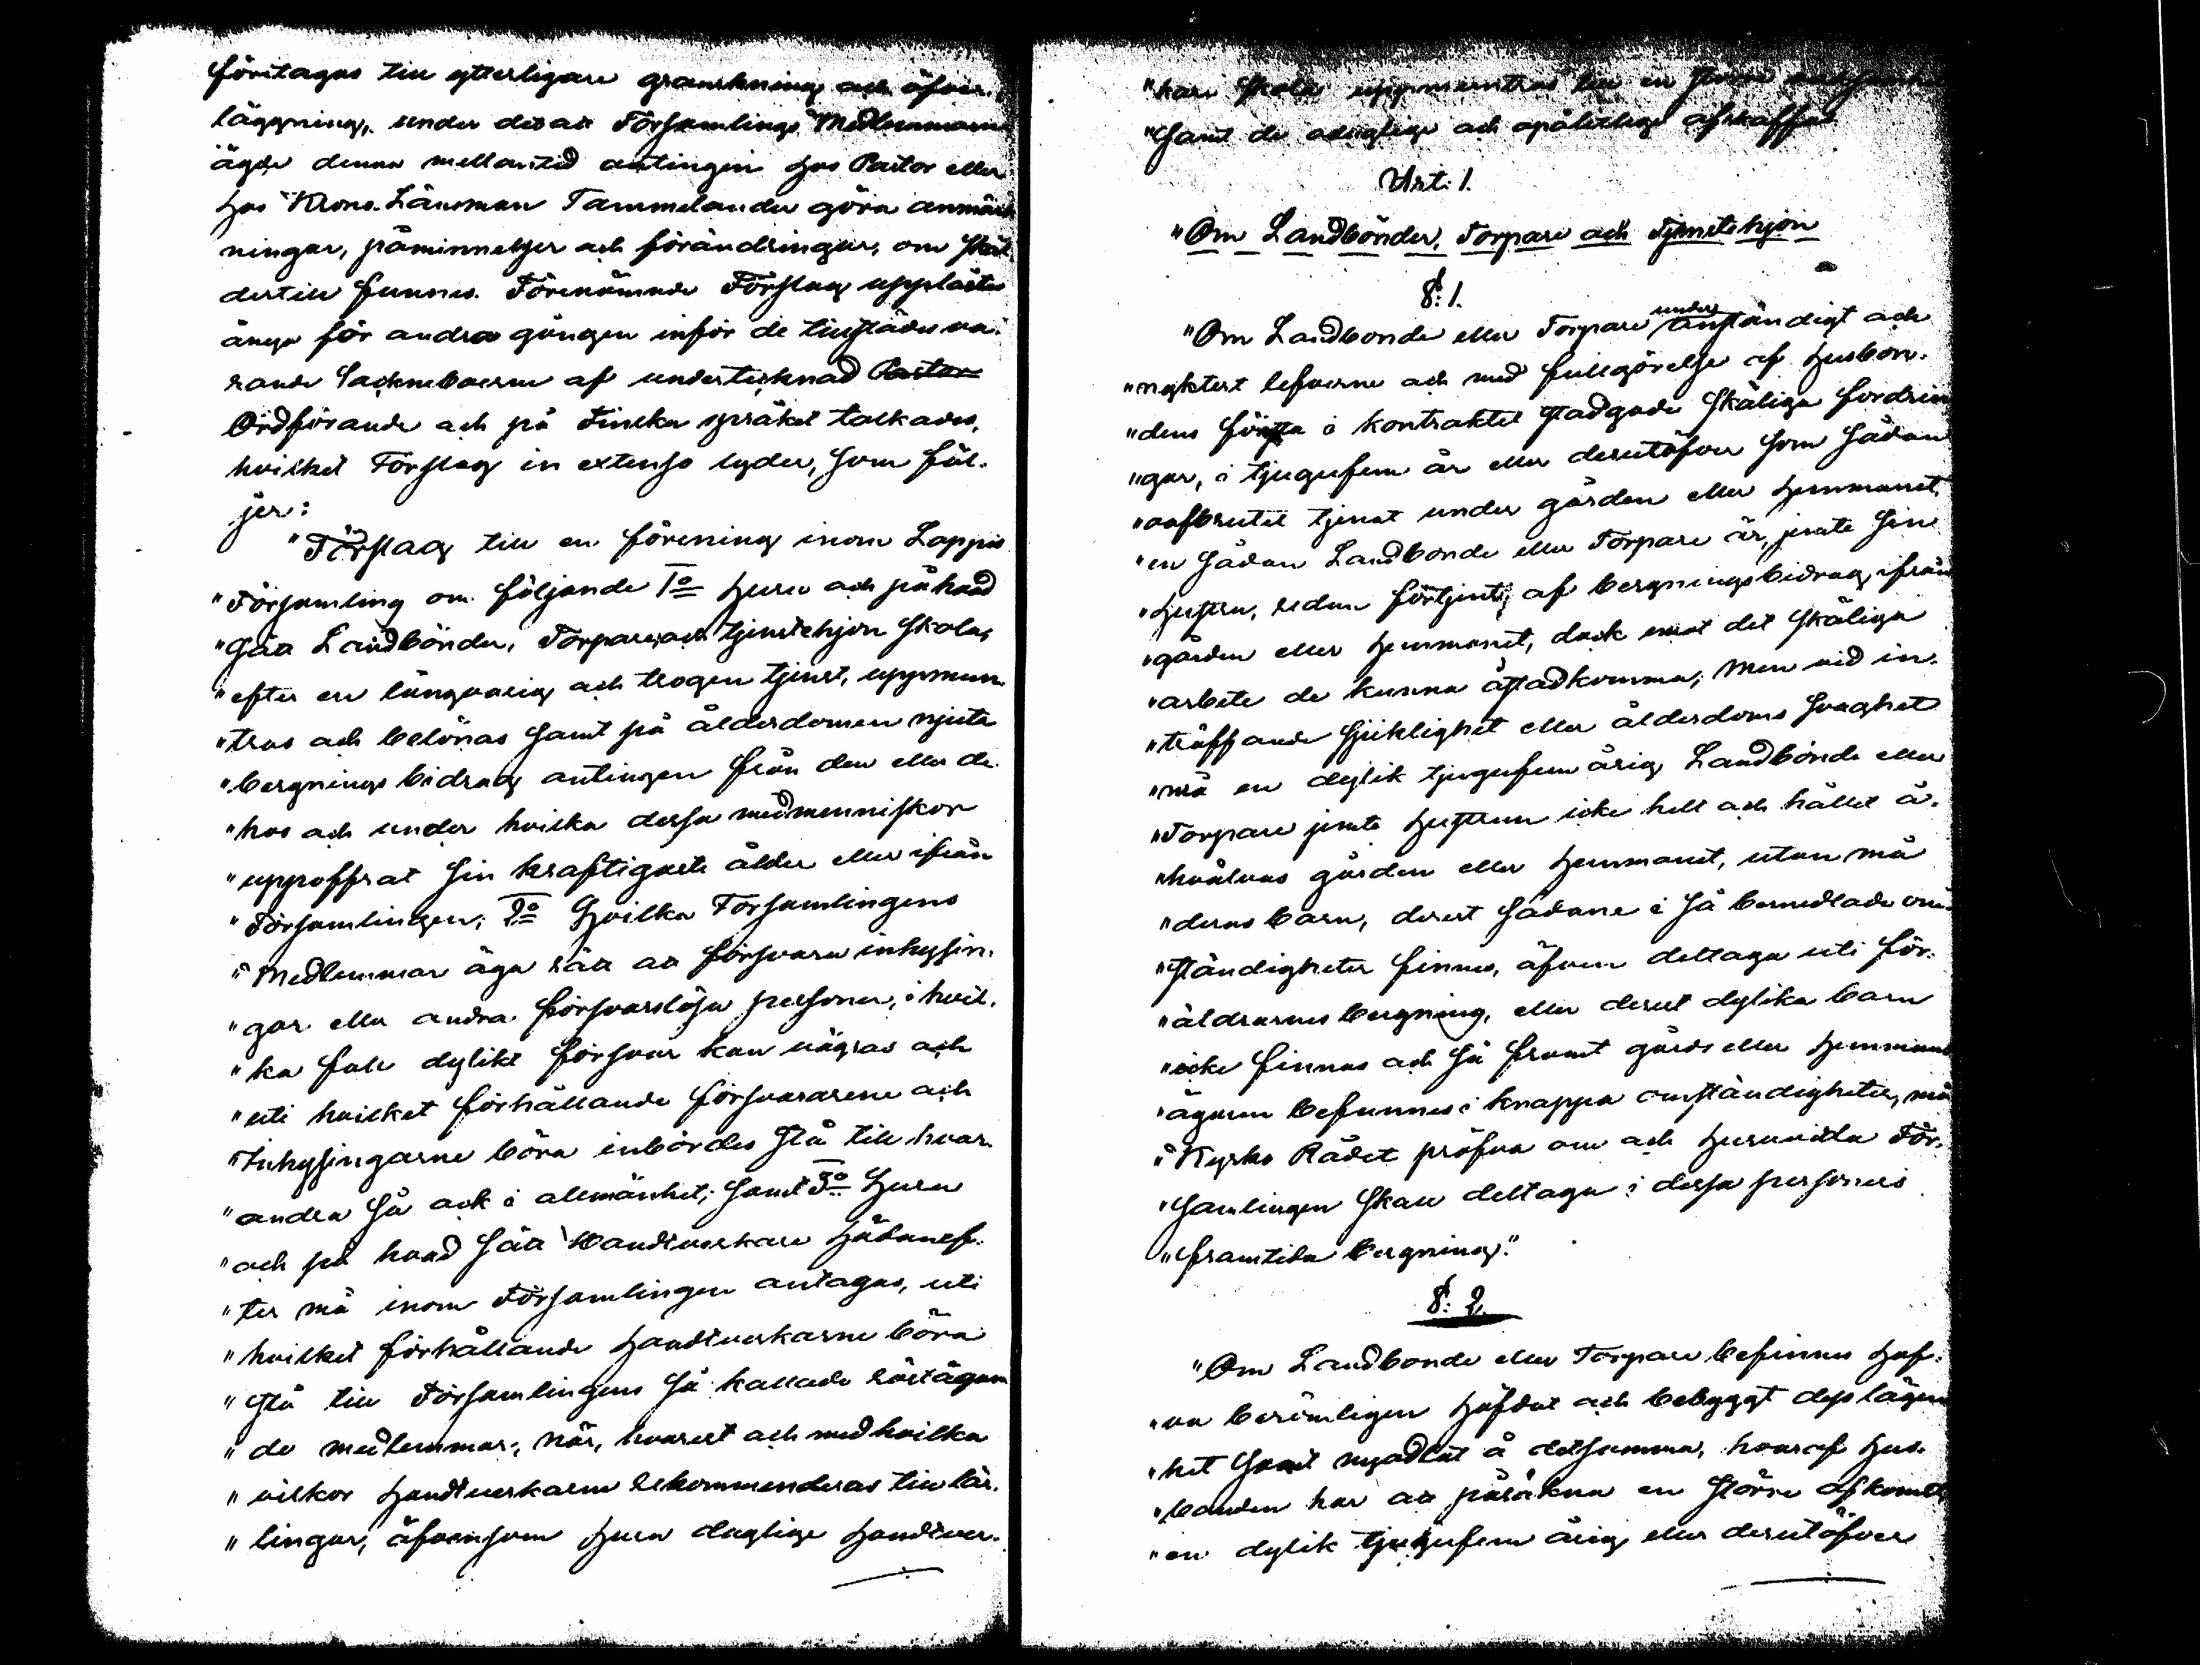 företagas till ytterligare granskning och öfver-
läggning, under det att Församlings Medlemmarne
ägde denna mellantid antingen hos Pastor eller
hos Krono Länsman Tammelander göra anmärk
ningar, påminnelser och förändringar, om skäl
dertill funnes. Förenämnde Förslag upplästes
ånyo för andra gången inför de tillstädesva-
rande Sockneboerne af undertecknad Pastor
Ordförande och på Finska språket tolkades,
hvilket Förslag in extenso lyder, som föl-
jer:
"Förslag till en förening inom Lappis
"Församling om följande 1o huru och på hvad
"sätt Landbönder, Torpare och tjenstehjon skola,
"efter en långvarig och trogen tjenst, uppmun-
"tras och belönas samt på ålderdomen njuta
"bergnings bidrag antingen från den eller de
"hos och under hvilka dessa medmenniskor
"uppoffrat sin kraftigaste ålder eller ifrån
"Församlingen; 2o Hvilka Församlingens
"Medlemmar äga rätt att försvara inhysin-
"gar eller andra försvarslösa personer, i hvil-
"ka fall dylikt försvar kan vägras och
"uti hvilket förhållande försvararene och
"Inhysingarne böra inbördes stå till hvar-
"andra så ock i allmänhet; samt 3o Huru
"och på hvad sätt Handtverkare hädanef-
"ter må inom Församlingen antagas, uti
"hvilket förhållande handtverkarne böra
"stå till Församlingens så kallade röstägan
"de medlemmar; när, hvarest och med hvilka
"vilkor handtverkarne rekommenderas till lär-
"lingar, äfvensom huru duglige handtver-
"kare skola uppmuntras till en
"samt de oduglige och opålitlige afskaffas
Art: 1.
"Om Landbönder, Torpare och Tjenstehjon
§: 1.
"Om Landbonde eller Torpare under anständigt och
"nyktert lefverne och med fullgörelse af husbon-
"dens i kontraktet stadgade skäliga fordrin
"gar, i tjugufem år eller derutöfver som sådan
"oafbrutit tjenat under gården eller hemmanet,
"en sådan Landbonde eller Torpare är, jemte sin
"hustru, redan förtjent af bergningsbidrag ifrån
"gården eller hemmanet, dock emot det skäliga
"arbete de kunna åstadkomma; Men vid in-
"träffande sjuklighet eller ålderdoms svaghet
"må en dylik tjugufem årig Landbonde eller
"Torpare jemte hustrun icke helt och hållet å-
"hvälvas gården eller hemmanet, utan må
"deras barn, derest sådane i så bemedlade om-
"ständigheter finnes, äfven deltaga uti för-
"äldrarnes bergning, eller derest dylika barn
"icke finnas och så framt gårds eller hemmans
"ägaren befunnes i knappa omständigheter, må
"Kyrko Rådet pröfva om och huruvida För-
"samlingen skall deltaga i dessa personers
"framtida bergning."
§: 2.
"Om Landbonde eller Torpare befinnes haf-
"va berömligen häfdat och bebyggt dess lägen
"het samt nyodlat å detsamma, hvaraf hus-
"bonden har att påräkna en större afkomst
"en dylik tjugufem årig eller derutöfver